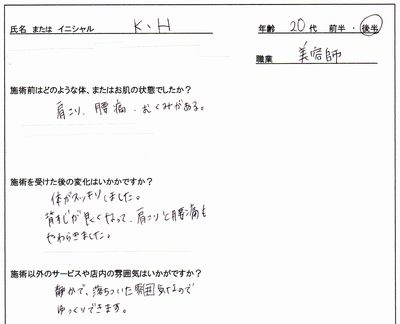 氏名 または イニシャル K・H
年齢 20代 前半・後半
職業 美容師
施術前はどのような体、またはお肌の状態でしたか？
肩こり、腰痛、むくみがある。
施術を受けた後の変化はいかかですか？
体がスッキリしました。
背すじが良くなって、肩こりと腰痛も
やわらぎました。
施術以外のサービスや店内の雰囲気はいかがですか？
静かで、落ちついた雰囲気なので
ゆっくりできます。